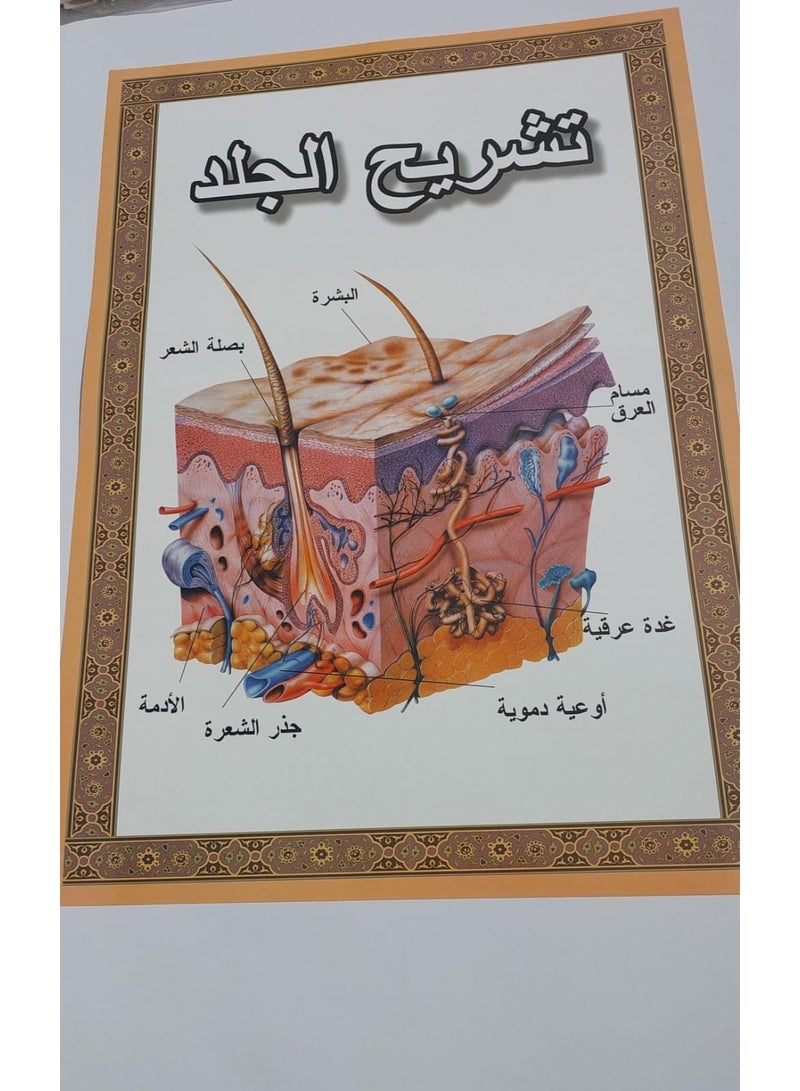 تشريح الجلد
البشرة
بصلة الشعر
مسام
العرق
غدة عرقية
أوعية دموية
الأدمة
جذر الشعرة